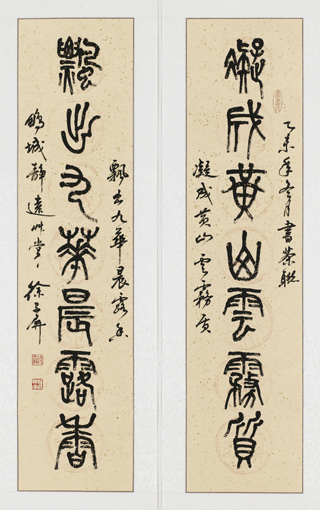 凝成黄山雲霧質
乙未年冬月書茶聯
凝成黄山雲霧質
飄出九華晨露香
飄出九華晨露香
鵬城靜遠草堂徐子屏